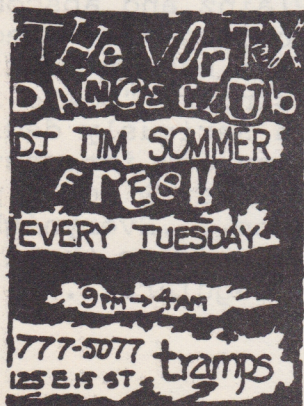 THe VOrTeX
DANCE CLUb
DJ TIM SOMMER
FrEe!!
EVERY TUESDAY
9 PM → 4 AM
777-5077
125 E 15 ST. tramps